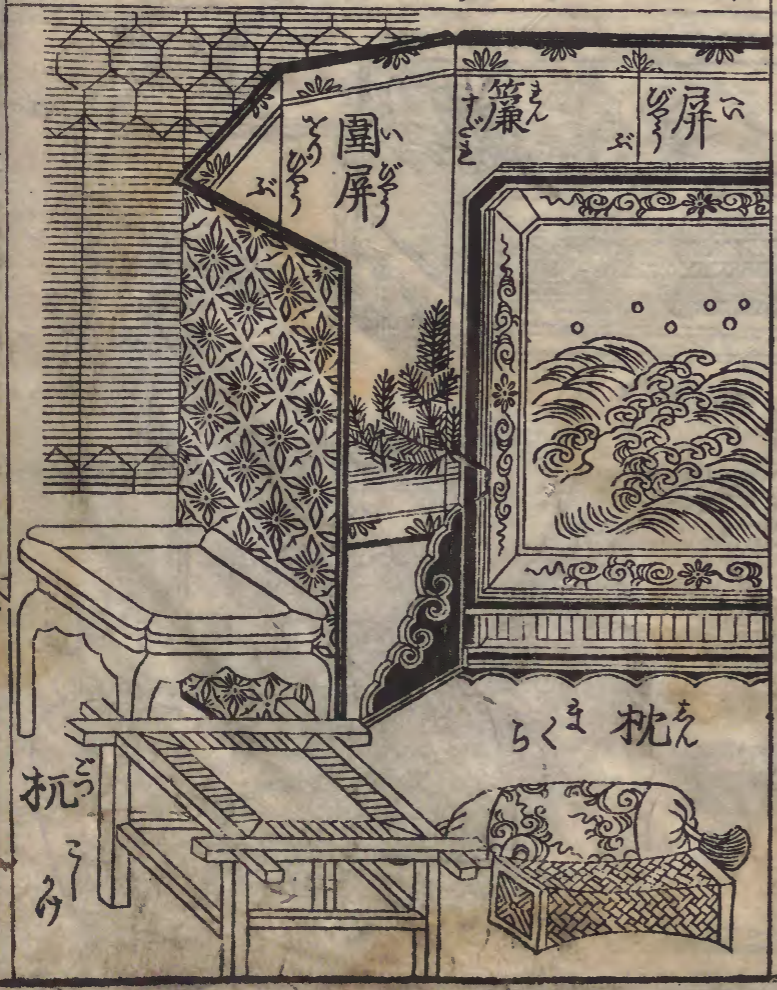 屏 へい
びやう
ぶ
簾 れん
すだれ
圍屏 いびやう
びやう
ぶ
枕 しん
まくら
杌 ごつ
こし
かけ